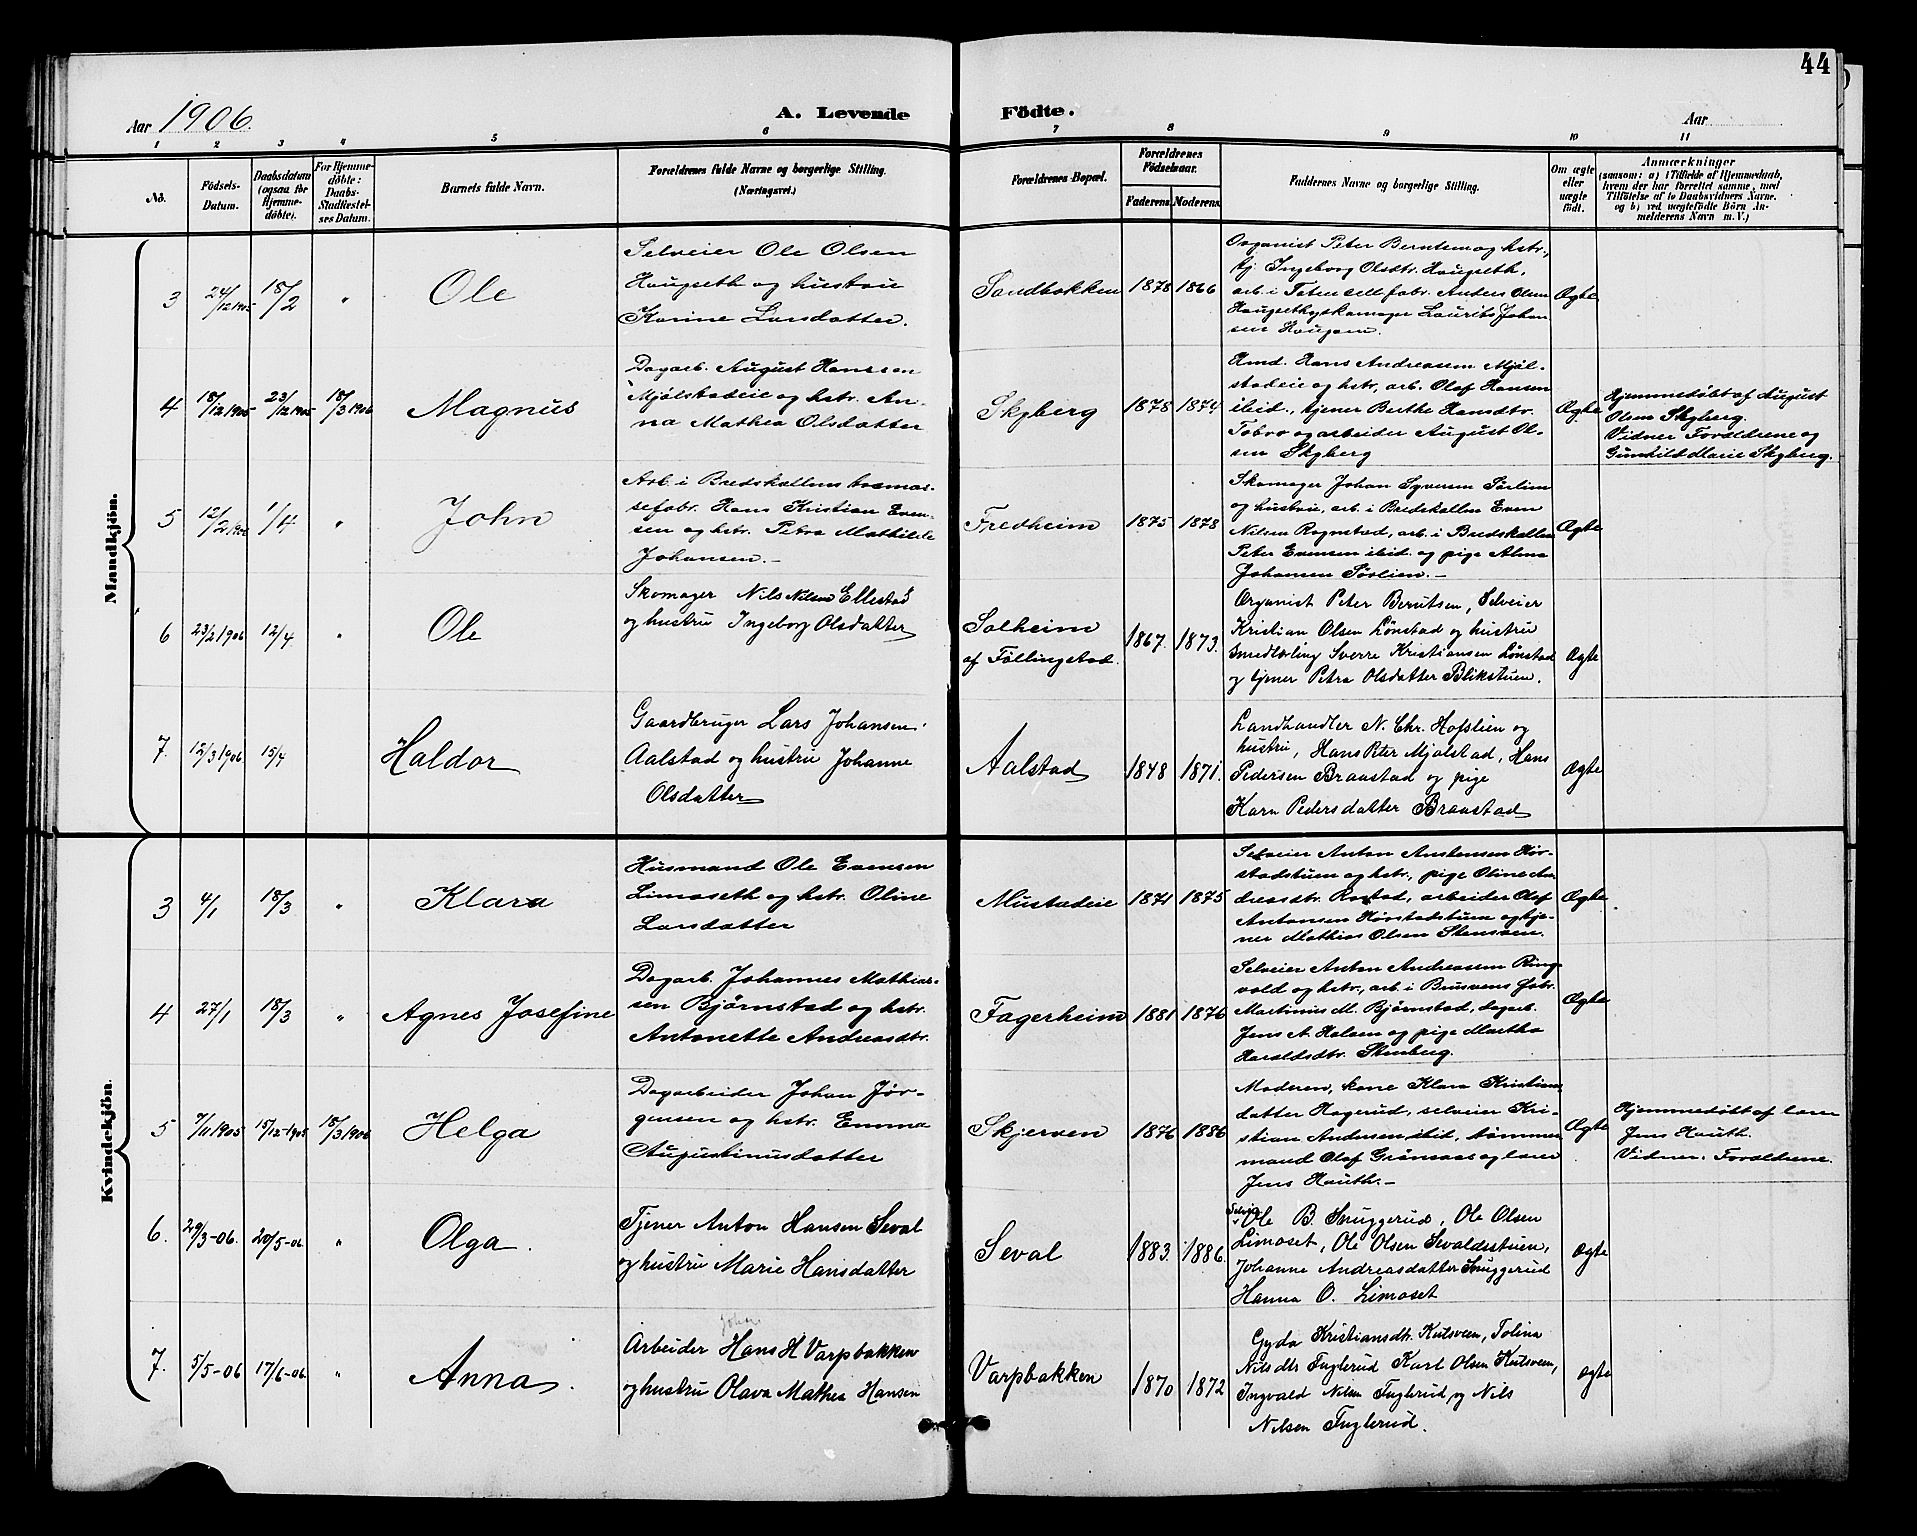 44
Aar 1906.
A. Levende Födte.
Aar
1 2 3 4 5 6 7 8 9 10 11
No.
Födsels-
Datum.
Daabsdatum
(ogsaa for
Hjemme-
döbte).
For Hjemme-
döbte:
Daabs-
Stadfæstel-
ses Datum.
Barnets fulde Navn.
Forældrenes fulde Navne og borgerlige Stilling.
(Næringsvei.)
Forældrenes Bopæl.
Forældrenes
Födselsaar.
Faderens. Moderens.
Faddernes Navne og borgerlige Stilling.
Om ægte
eller
uægte
født.
Anmærkninger
(saasom: a) i Tilfælde af Hjemmedaab,
hvem der har forrettet samme, med
Tilføielse af to Daabsvidners Navne.
og b) ved uægtefødte Börn An-
melderens Navn m. V.)
Mandkjön.
3 24/12 1905 18/2 " Ole
Selveier Ole Olsen
Haugseth og hustru
Karine Larsdatter.
Sandbakken 1878 1866
Organist Peter Berntsen og hstr.,
tj. Ingeborg Olsdtr. Haugseth,
arb. i Toten cellfabr. Anders Olsen
Haugseth og skomager Laurits Johan
sen Haugom.
Ægte
4 18/12 1905 23/12 1905 18/3 1906 Magnus
Dagarb. August Hanssen
Mjølstadeie og hstr. An-
na Mathea Olsdatter
Skyberg 1878 1874
Hmd. Hans Andreassen Mjøl-
stadeie og hstr., arb. Olaf Hansen
ibid., tjener Berthe Hansdtr.
Tobro og arbeider August Ol-
sen Skyberg
Ægte
Hjemmedøbt af August
Olsen Skyberg.
Vidner Forældrene og
Gunhild Marie Skyberg.
5 12/2 1906 1/4 " John
Arb. i Bredskallens træmas-
sefabr. Hans Kristian Even-
sen og hstr. Petra Mathilde
Johansen.-
Fredheim 1875 1878
Skomager Johan Syversen Sørlien
og hustru, arb. i Bredskallen Even
Nilsen Rognstad, arb. i Bredskallen
Peter Evensen ibid. og pige Alma
Johansen Sørlien.-
Ægte
6 23/2 1906 12/4 " Ole
Skomager Nils Nilsen Ellestad
og hustru Ingeborg Olsdatter
Solheim
af Føllingstad.
1867. 1873.
Organist Peter Berntsen, Selveier
Kristian Olsen Lønstad og hustru
Smedlærling Sverre Kristiansen Lønstad
og tjener Petra Olsdatter Blikstuen.
Ægte
7. 12/3 1906 15/4 Haldor
Gaardbruger Lars Johansen
Aalstad og hustru Johanne
Olsdatter
Aalstad 1848 1871.
Landhandler N. Chr. Hofslien og
hustru, Hans Peter Mjølstad, Hans
Pedersen Braastad og pige
Karn Pedersdatter Braastad
Ægte
Kvindekjön.
3 4/1 18/3 " Klara
Husmand Ole Evensen
Limoseth og hstr. Oline
Larsdatter
Mustadeie 1871 1875
Selveier Anton Anstensen Hør-
stadstuen og hstr., pige Oline An
dreasdtr. Rostad, arbeider Olaf
Antonsen Hørstadstuen og tje-
ner Mathias Olsen Stensveen.
Ægte
4 27/1 18/3 " Agnes Josefine
Dagarb. Johannes Mathias-
sen Bjørnstad og hstr.
Antonette Andreasdtr.
Fagerheim 1881 1876
Selveier Anton Andreassen Ring-
vold og hstr., arb. i Brusvens fabr.
Martinius M. Bjørnstad, dagarb.
Jens A. Halsen og pige Martha
Haraldsdtr. Stenberg.
Ægte
5 7/11 1905 15/12-1905 18/3 1906 Helga
Dagarbeider Johan Jør-
gensen og hstr. Emma
Augustinusdatter
Skjerven 1876 1886
Moderen, kone Klara Kristians
datter Hagerud, selveier Kri-
stian Andersen ibid, tømmer
mand Olaf Grønaas og lærer
Jens Hauth.-
Ægte
Hjemmedøbt af lærer
Jens Hauth.
Vidner. Forældrene.
6. 29/3-06. 20/5-06 " Olga.
Tjener Anton Hansen Seval
og hustru Marie Hansdatter
Seval 1883. 1886.
Selveier Ole B. Snuggerud, Ole Olsen
Limoset, Ole Olsen Sevaldsstuen,
Johanne Andreasdatter Snuggerud
Hanna O. Limoset
Ægte
7. 5/5-06 17/6-06. " Anna.
Johan
Arbeider Hans H Varpbakken
og hustru Olava Mathea Hansen
Varpbakken 1870 1872
Gyda Kristiansdtr. Kutsveen, Tolina
Nilsdtr Fuglerud Karl Olsen Kutsveen,
Ingvald Nilsen Fuglerud og Nils
Nilsen Fuglerud.
ægte